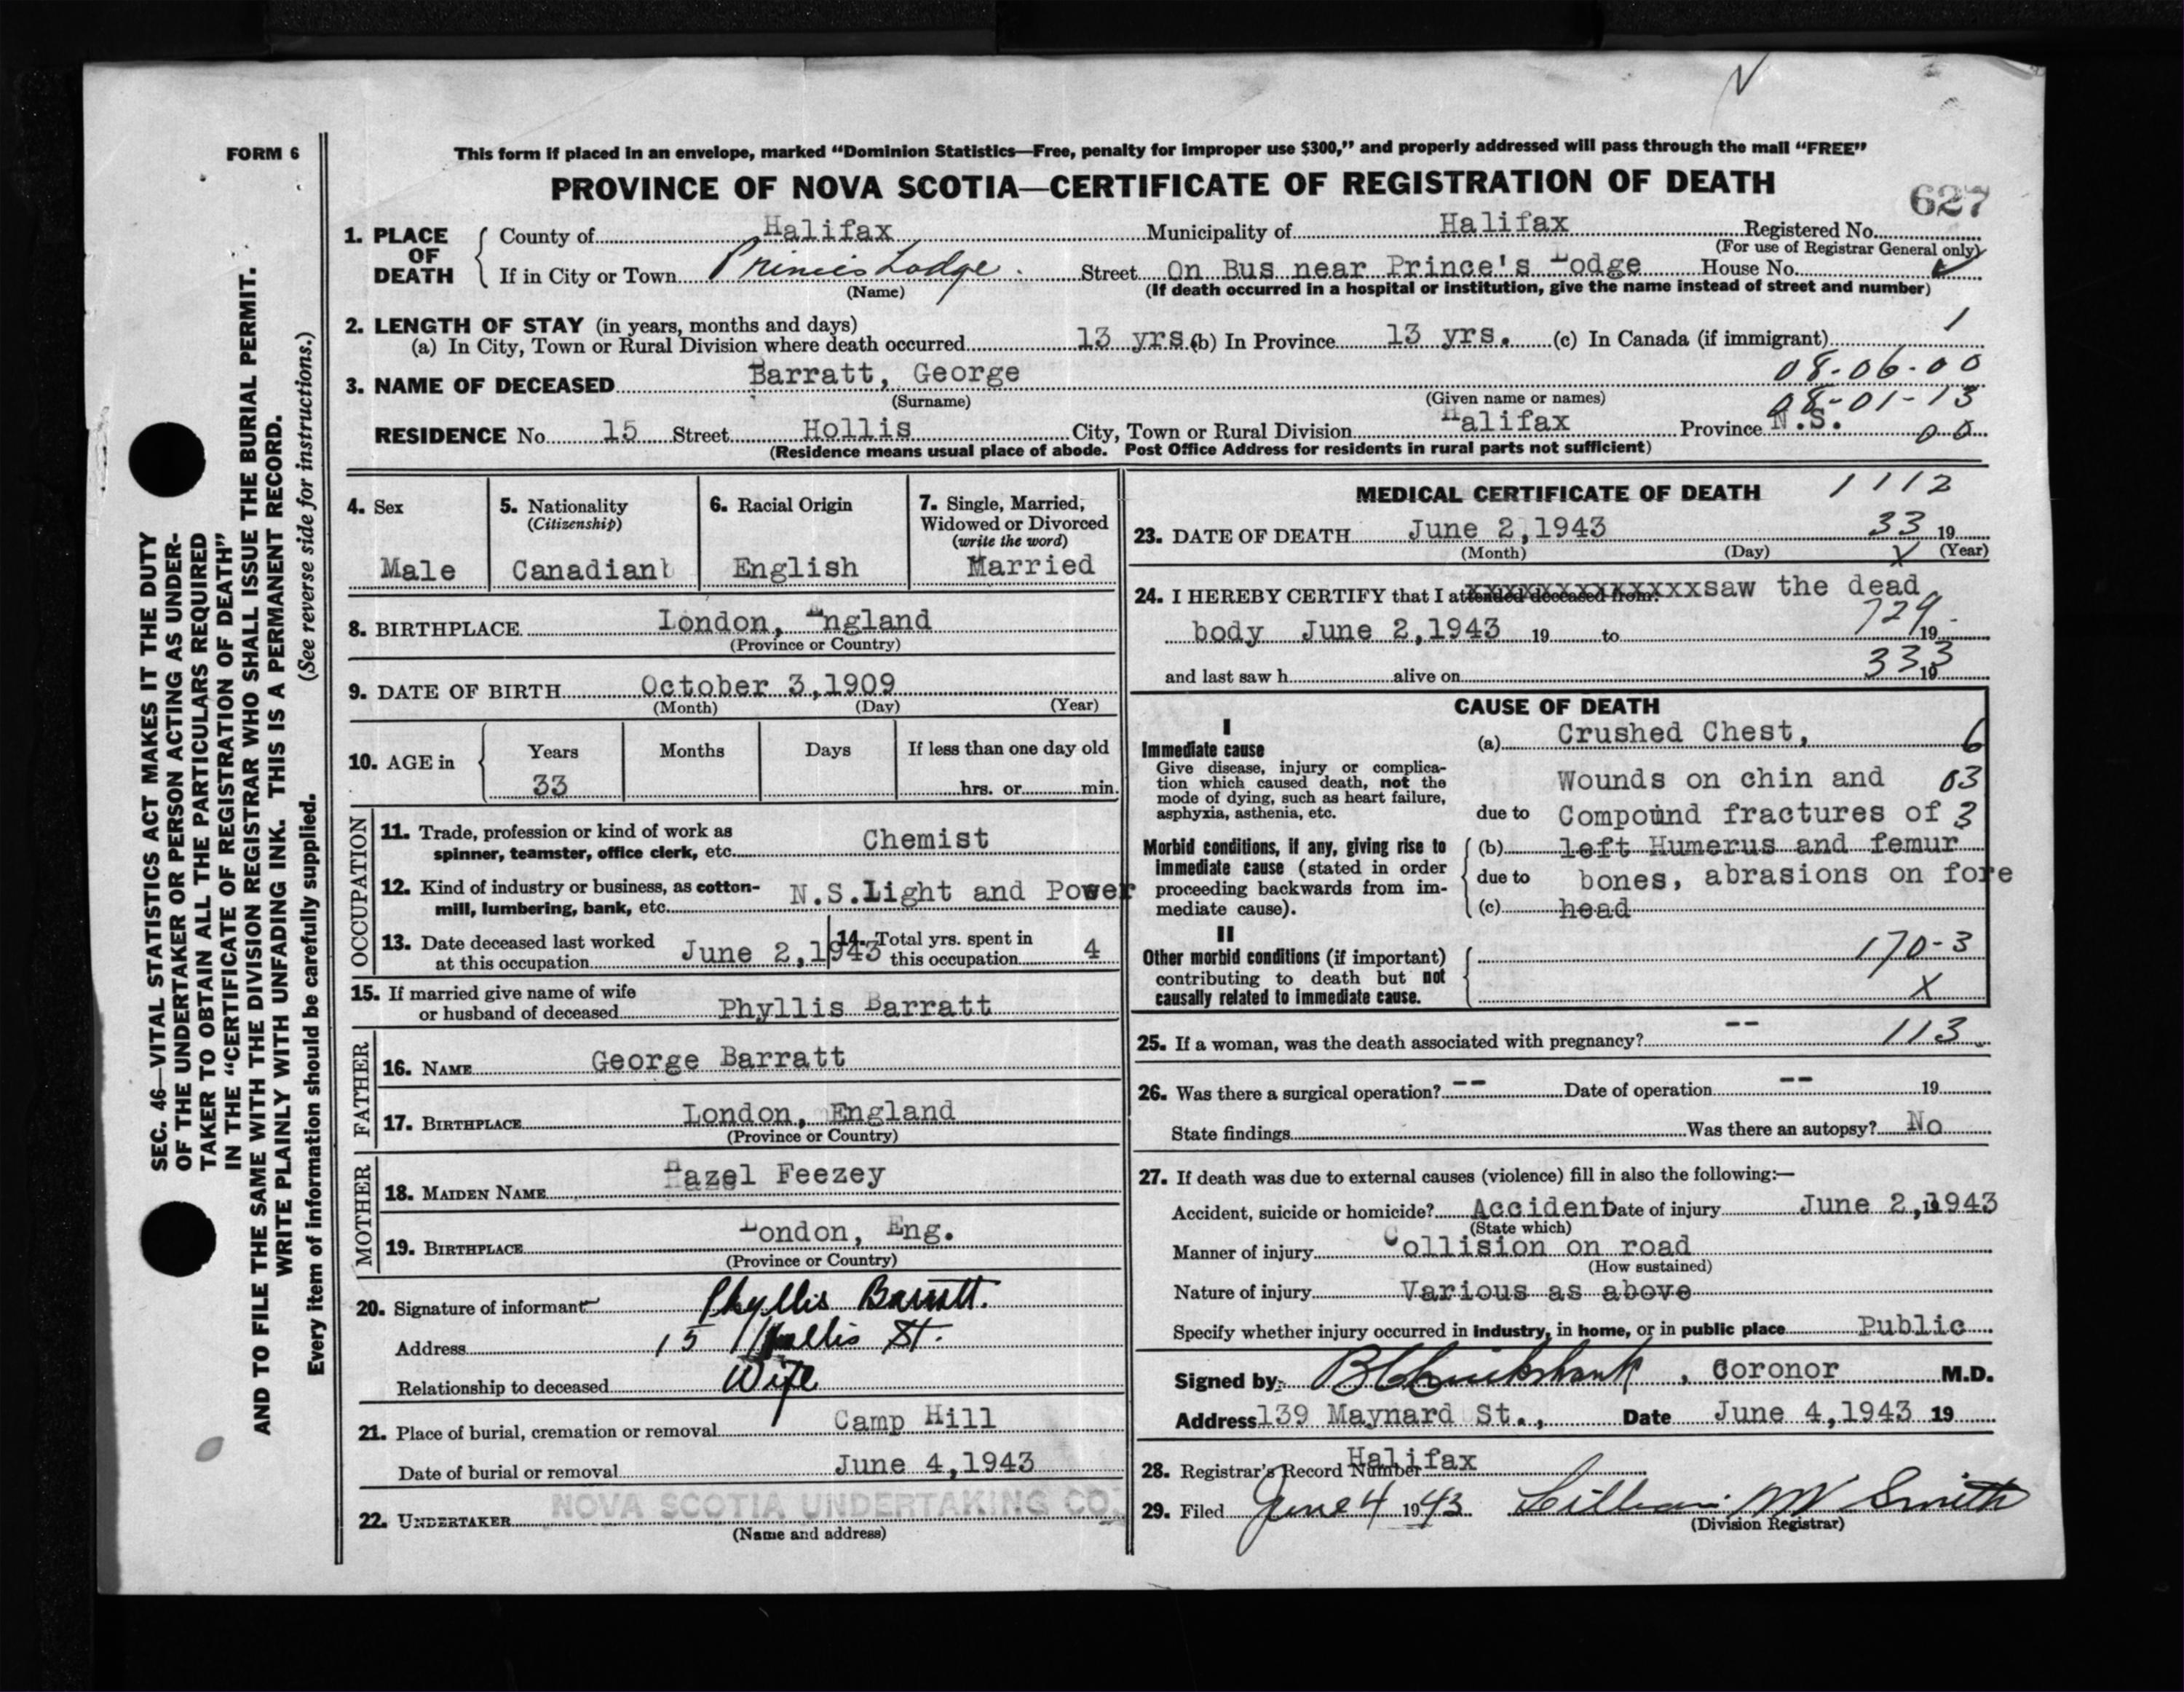 FORM 6
This form if placed in an envelope, marked “Dominion Statistics—Free, penalty for improper use $300,” and properly addressed will pass through the mail “FREE”
PROVINCE OF NOVA SCOTIA—CERTIFICATE OF REGISTRATION OF DEATH
627
1. PLACE OF DEATH
County of Halifax Municipality of Halifax Registered No.
(For use of Registrar General only)
If in City or Town Princes Lodge. Street On Bus near Prince's Lodge House No.
(Name) (If death occurred in a hospital or institution, give the name instead of street and number)
2. LENGTH OF STAY (in years, months and days) 1
(a) In City, Town or Rural Division where death occurred 13 yrs. (b) In Province 13 yrs. (c) In Canada (if immigrant)
08-06-00
3. NAME OF DECEASED Barratt, George
(Surname) (Given name or names) 08-01-13
RESIDENCE No. 15 Street Hollis City, Town or Rural Division Halifax Province N.S. 00
(Residence means usual place of abode. Post Office Address for residents in rural parts not sufficient)
4. Sex
Male
5. Nationality
(Citizenship)
Canadian
6. Racial Origin
English
7. Single, Married, Widowed or Divorced
(write the word)
Married
8. BIRTHPLACE London, England
(Province or Country)
9. DATE OF BIRTH October 3,1909
(Month) (Day) (Year)
10. AGE in Years Months Days If less than one day old
33 hrs. or min.
OCCUPATION
11. Trade, profession or kind of work as
spinner, teamster, office clerk, etc. Chemist
12. Kind of industry or business, as cotton-
mill, lumbering, bank, etc. N.S.Light and Power
13. Date deceased last worked
at this occupation June 2,1943
14. Total yrs. spent in
this occupation 4
15. If married give name of wife
or husband of deceased Phyllis Barratt
FATHER
16. NAME George Barratt
17. BIRTHPLACE London, England
(Province or Country)
MOTHER
18. MAIDEN NAME Hazel Feezey
19. BIRTHPLACE London, Eng.
(Province or Country)
20. Signature of informant Phyllis Barratt.
Address 15 Hollis St.
Relationship to deceased Wife
21. Place of burial, cremation or removal Camp Hill
Date of burial or removal June 4,1943
22. UNDERTAKER NOVA SCOTIA UNDERTAKING CO.
(Name and address)
MEDICAL CERTIFICATE OF DEATH 1112
23. DATE OF DEATH June 2,1943 33 19
(Month) (Day) X (Year)
24. I HEREBY CERTIFY that I attended deceased from: xxxxxxxxxxxxxxx saw the dead
body June 2,1943 19 to 729 19
and last saw h alive on 333 19
CAUSE OF DEATH
I
Immediate cause
Give disease, injury or complica-
tion which caused death, not the
mode of dying, such as heart failure,
asphyxia, asthenia, etc.
Morbid conditions, if any, giving rise to
immediate cause (stated in order
proceeding backwards from im-
mediate cause).
(a) Crushed Chest, 6
Wounds on chin and 03
due to Compound fractures of 3
(b) left Humerus and femur
due to bones, abrasions on fore
(c) head
II
Other morbid conditions (if important)
contributing to death but not
causally related to immediate cause.
170-3
X
25. If a woman, was the death associated with pregnancy? -- 113
26. Was there a surgical operation? -- Date of operation -- 19
State findings Was there an autopsy? No
27. If death was due to external causes (violence) fill in also the following:—
Accident, suicide or homicide? Accident Date of injury June 2,1943
(State which)
Manner of injury Collision on road
(How sustained)
Nature of injury Various as above
Specify whether injury occurred in industry, in home, or in public place Public
Signed by: , Coronor M.D.
Address 139 Maynard St., Date June 4,1943 19
Halifax
28. Registrar's Record Number
29. Filed June 4 1943 Lillian M Smith
(Division Registrar)
SEC. 46—VITAL STATISTICS ACT MAKES IT THE DUTY
OF THE UNDERTAKER OR PERSON ACTING AS UNDER-
TAKER TO OBTAIN ALL THE PARTICULARS REQUIRED
IN THE “CERTIFICATE OF REGISTRATION OF DEATH”
AND TO FILE THE SAME WITH THE DIVISION REGISTRAR WHO SHALL ISSUE THE BURIAL PERMIT.
WRITE PLAINLY WITH UNFADING INK. THIS IS A PERMANENT RECORD.
Every item of information should be carefully supplied. (See reverse side for instructions.)